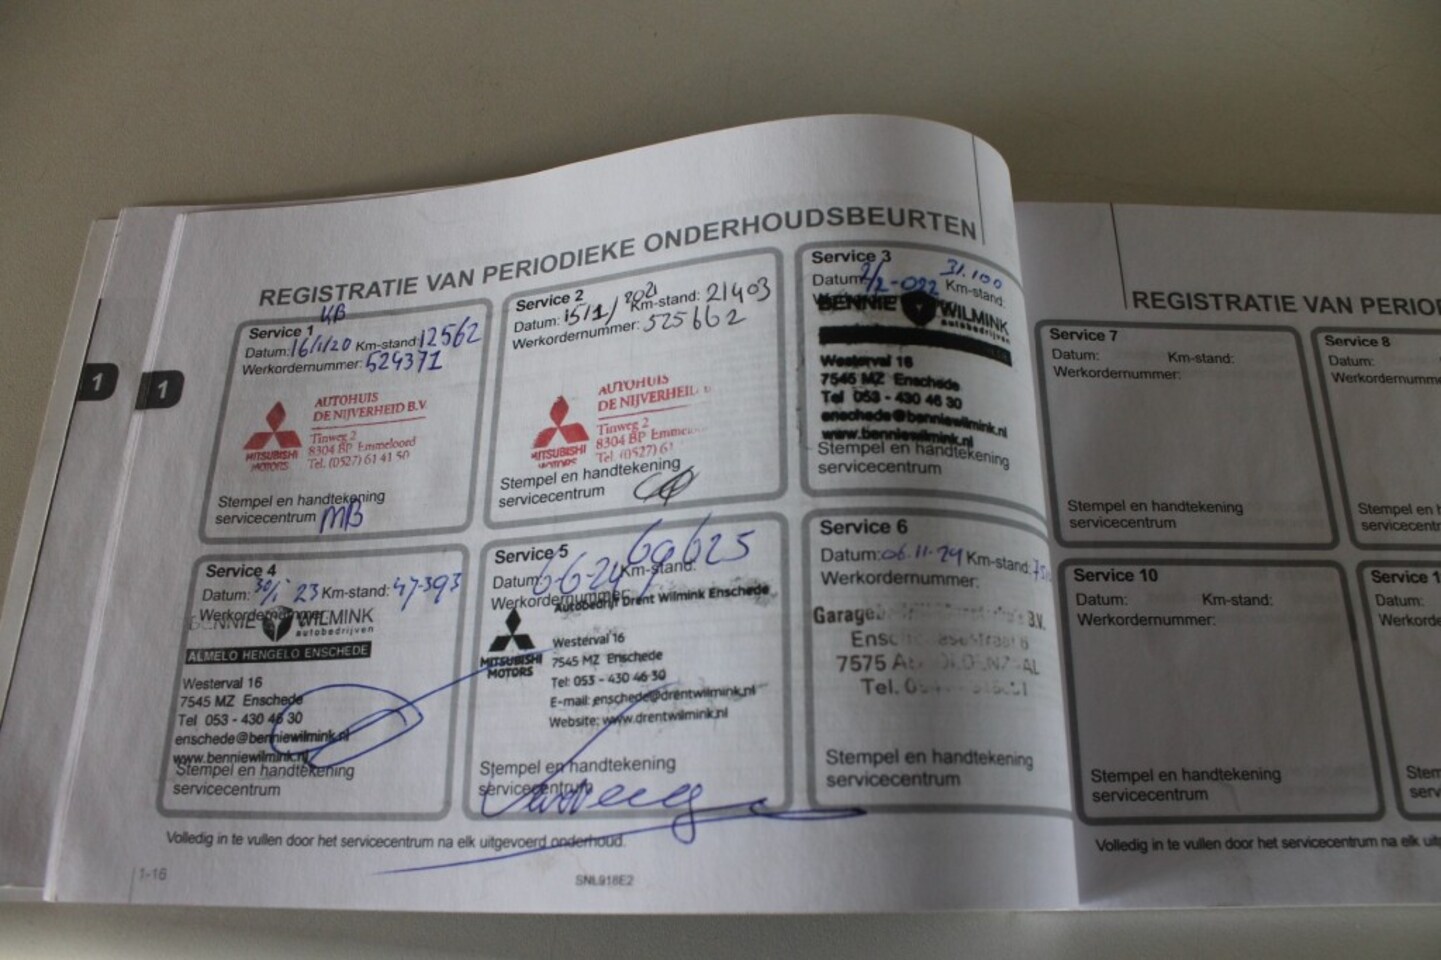 REGISTRATIE VAN PERIODIEKE ONDERHOUDSBEURTEN
Service 1
Datum: 16/1/20 Km-stand: 12562
Werkordernummer: 524371
AUTOHUIS
DE NIJVERHEID B.V.
Tinweg 2
8304 BP Emmeloord
Tel. (0527) 61 41 50
MITSUBISHI
MOTORS
Stempel en handtekening
servicecentrum MB
Service 2
Datum: 15/1/2021 Km-stand: 21403
Werkordernummer: 525662
AUTOHUIS
DE NIJVERHEID
Tinweg 2
8304 BP
Tel. (0527) 61
MITSUBISHI
MOTORS
Stempel en handtekening
servicecentrum
Service 3
Datum: Km-stand: 31.100
BENNIE WILMINK
autobedrijven
Westerval 16
7545 MZ Enschede
Tel 053 - 430 46 30
enschede@benniewilmink.nl
www.benniewilmink.nl
Stempel en handtekening
servicecentrum
Service 4
Datum: 23 Km-stand: 47-393
Werkordernummer
BENNIE WILMINK
autobedrijven
ALMELO HENGELO ENSCHEDE
Westerval 16
7545 MZ Enschede
Tel 053 - 430 46 30
enschede@benniewilmink.nl
www.benniewilmink.nl
Stempel en handtekening
servicecentrum
Service 5
Datum: 6-6-24 Km-stand: 69625
Werkordernummer:
Autobedrijf Drent Wilmink Enschede
Westerval 16
7545 MZ Enschede
Tel: 053 - 430 46 30
E-mail: enschede@drentwilmink.nl
Website: www.drentwilmink.nl
MITSUBISHI
MOTORS
Stempel en handtekening
servicecentrum
Service 6
Datum: 06.11.24 Km-stand:
Werkordernummer:
B.V.
7575
Tel.
Stempel en handtekening
servicecentrum
Volledig in te vullen door het servicecentrum na elk uitgevoerd onderhoud.
1-16
SNL918E2
1
1
REGISTRATIE VAN PERIO
Service 7
Datum: Km-stand:
Werkordernummer:
Stempel en handtekening
servicecentrum
Service 8
Datum:
Werkordernumme
Stempel en h
servicecentr
Service 10
Datum: Km-stand:
Werkordernummer:
Stempel en handtekening
servicecentrum
Service 1
Datum:
Werkorde
Stem
serv
Volledig in te vullen door het servicecentrum na elk uitg